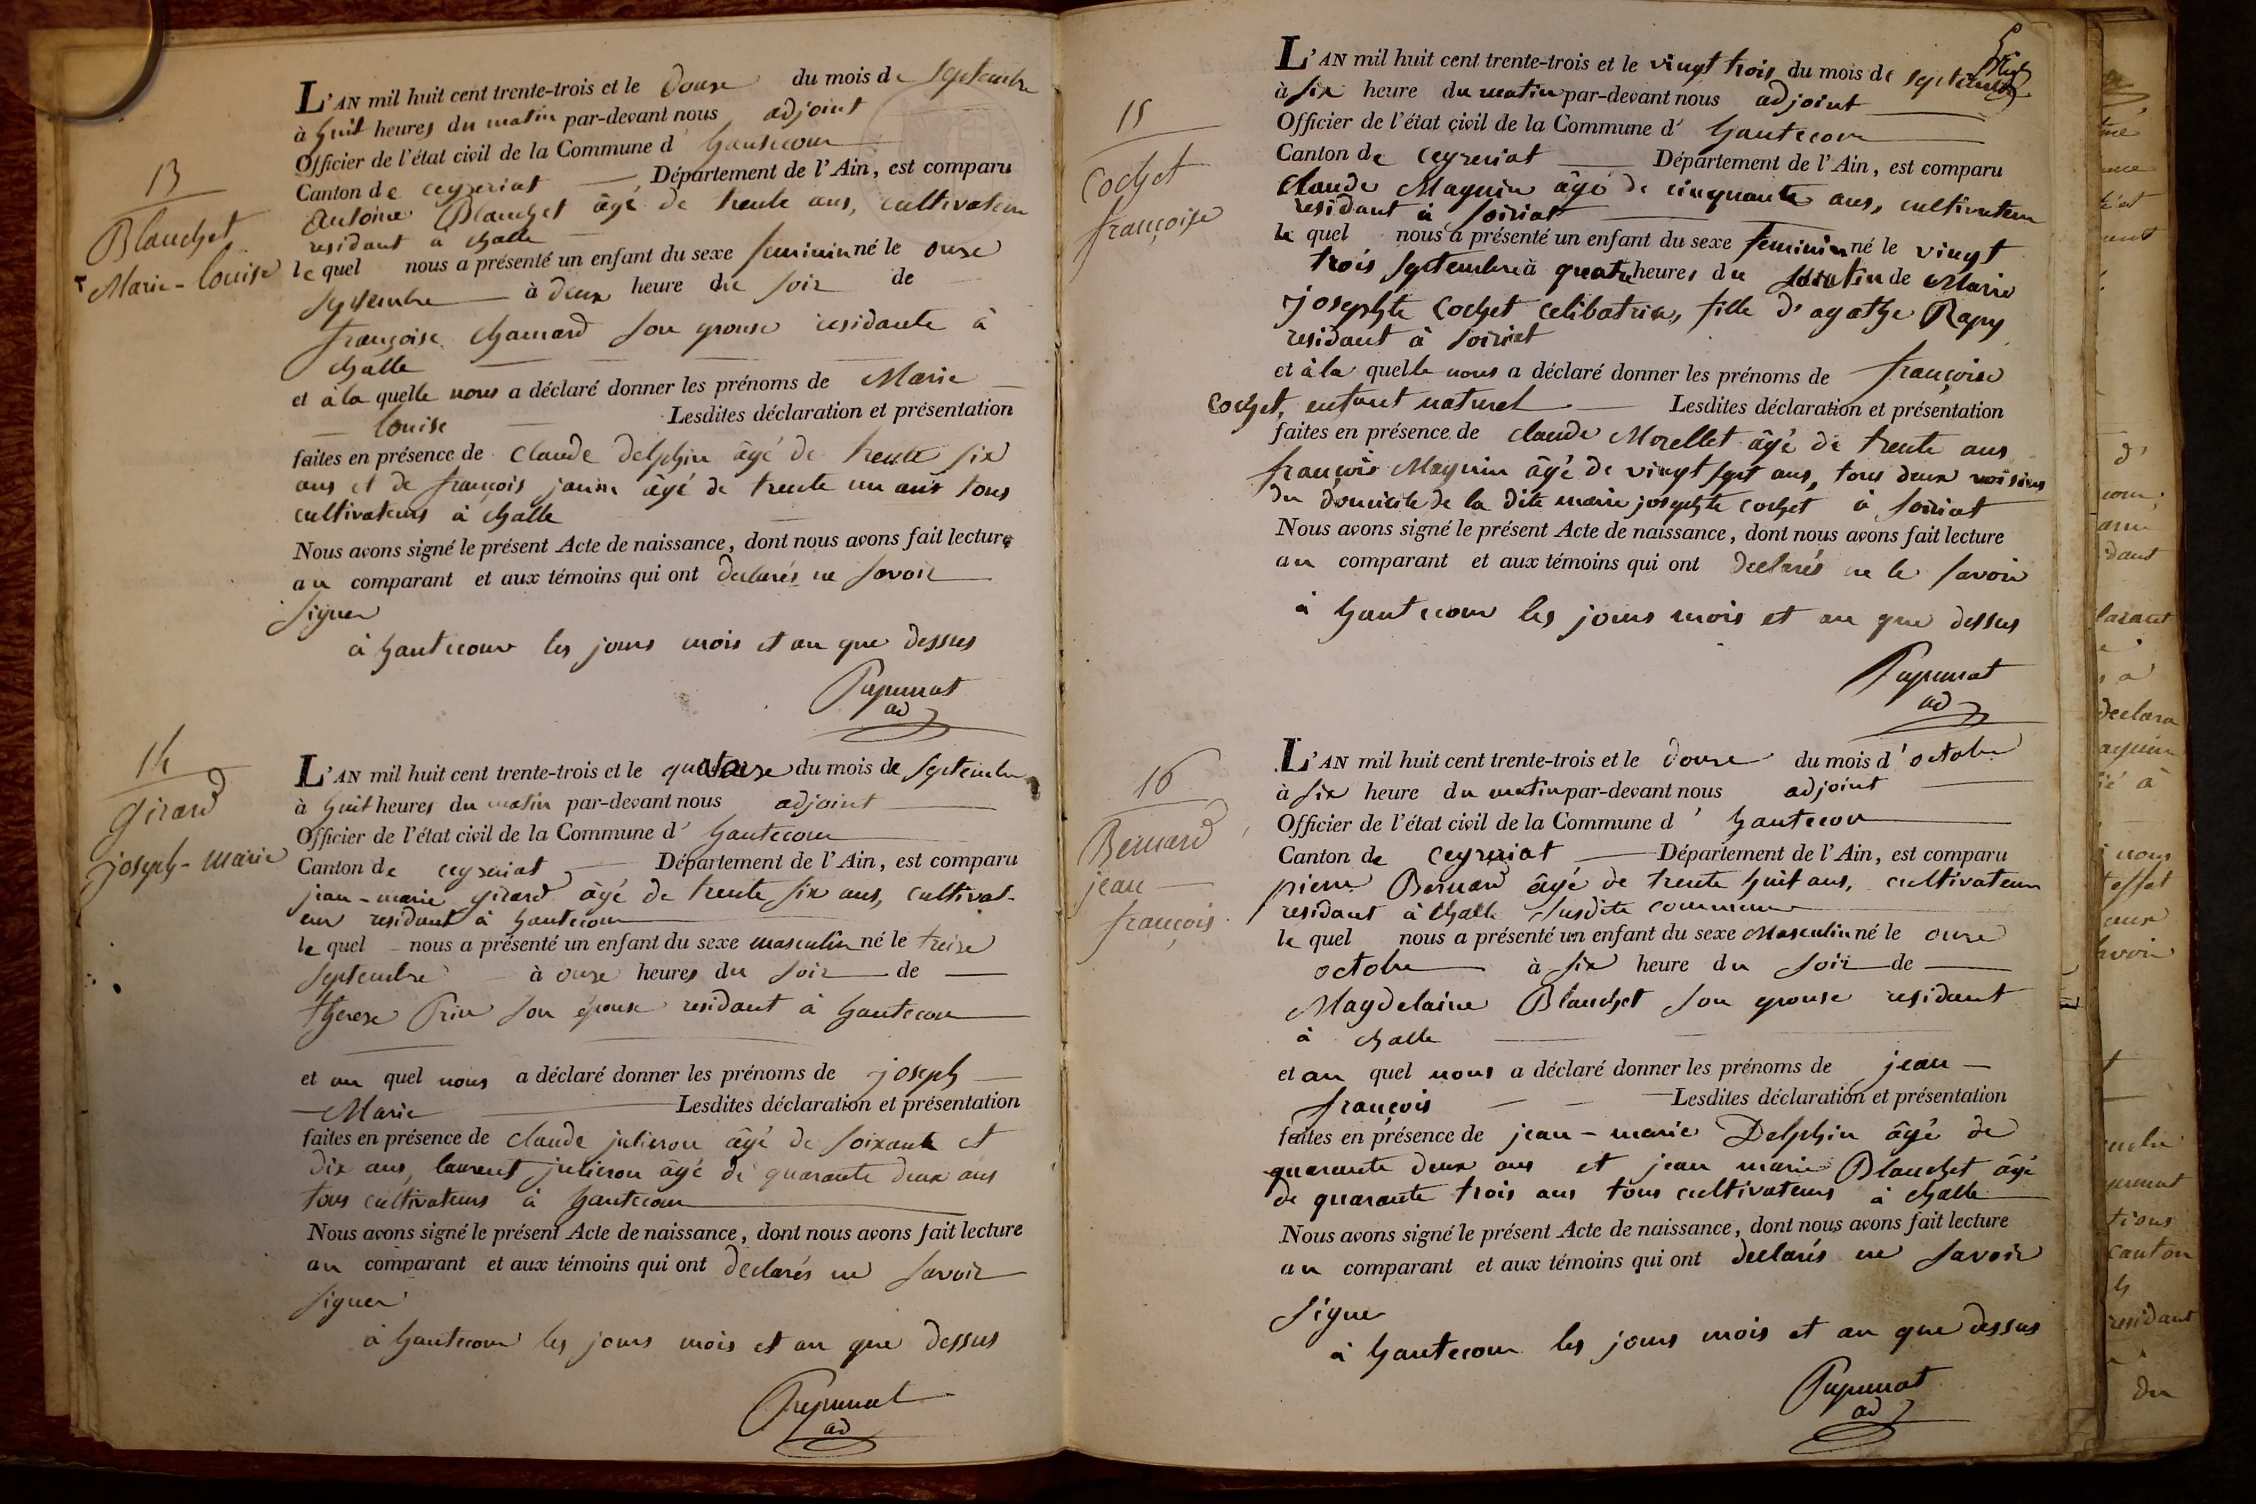 13
Blanchet
Marie-Louise
L'AN mil huit cent trente-trois et le douze du mois de septembre
à huit heures du matin par-devant nous adjoint
Officier de l'état civil de la Commune d' hautecour
Canton de ceyzeriat Département de l'Ain, est comparu
antoine Blanchet âgé de trente ans, cultivateur
residant à challe
le quel nous a présenté un enfant du sexe feminin né le onze
septembre à deux heure du soir de
françoise chanard son epouse residante à
challe
et à la quelle nous a déclaré donner les prénoms de Marie
louise Lesdites déclaration et présentation
faites en présence de claude delphin âgé de trente six
ans et de françois janin âgé de trente un ans tous
cultivateurs à challe
Nous avons signé le présent Acte de naissance, dont nous avons fait lecture
au comparant et aux témoins qui ont declarés ne savoir
signer
à hautecour les jours mois et an que dessus
ad
14
girard
joseph-marie
L'AN mil huit cent trente-trois et le quatorze du mois de septembre
à huit heures du matin par-devant nous adjoint
Officier de l'état civil de la Commune d' hautecour
Canton de ceyzeriat Département de l'Ain, est comparu
jean-marie girard âgé de trente six ans, cultivat-
eur residant à hautecour
le quel nous a présenté un enfant du sexe masculin né le treize
septembre à onze heures du soir de
therese Prin son épouse residant à hautecour
et au quel nous a déclaré donner les prénoms de joseph
Marie Lesdites déclaration et présentation
faites en présence de claude julieron âgé de soixante et
dix ans, laurent julieron âgé de quarante deux ans
tous cultivateurs à hautecour
Nous avons signé le présent Acte de naissance, dont nous avons fait lecture
au comparant et aux témoins qui ont declarés ne savoir
signer
à hautecour les jours mois et an que dessus
ad
15
Cochet
françoise
L'AN mil huit cent trente-trois et le vingt trois du mois de septembre
à six heure du matin par-devant nous adjoint
Officier de l'état civil de la Commune d' hautecour
Canton de ceyzeriat Département de l'Ain, est comparu
claude Magnin âgé de cinquante ans, cultivateur
residant à soiriat
le quel nous a présenté un enfant du sexe feminin né le vingt
trois septembre à quatre heures du matin de Marie
josephte Cochet celibatrice, fille d'agathe Rapy
residant à soiriat
et à la quelle nous a déclaré donner les prénoms de françoise
Cochet, enfant naturel Lesdites déclaration et présentation
faites en présence de claude Morellet âgé de trente ans
françois Magnin âgé de vingt sept ans, tous deux voisins
du domicile de la dite marie josephte cochet à soiriat
Nous avons signé le présent Acte de naissance, dont nous avons fait lecture
au comparant et aux témoins qui ont declarés ne le savoir
à hautecour les jours mois et an que dessus
ad
16
Bernard
jean
françois
L'AN mil huit cent trente-trois et le douze du mois d'octobre
à six heure du matin par-devant nous adjoint
Officier de l'état civil de la Commune d' hautecour
Canton de Ceyzeriat Département de l'Ain, est comparu
pierre Bernard âgé de trente huit ans, cultivateur
residant à challe susdite commune
le quel nous a présenté un enfant du sexe Masculin né le onze
octobre à six heure du soir de
Magdelaine Blanchet son epouse residant
à challe
et au quel nous a déclaré donner les prénoms de jean
françois Lesdites déclaration et présentation
faites en présence de jean-marie Delphin âgé de
quarante deux ans et jean marie Blanchet âgé
de quarante trois ans tous cultivateurs à challe
Nous avons signé le présent Acte de naissance, dont nous avons fait lecture
au comparant et aux témoins qui ont declarés ne savoir
signer
à hautecour les jours mois et an que dessus
ad